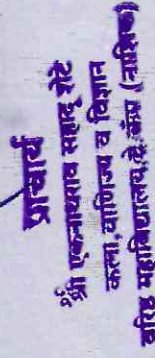 प्राचार्य
श्री एकनाथराव सहादु शेटे
कला, वाणिज्य व विज्ञान
वरिष्ठ महाविद्यालय,